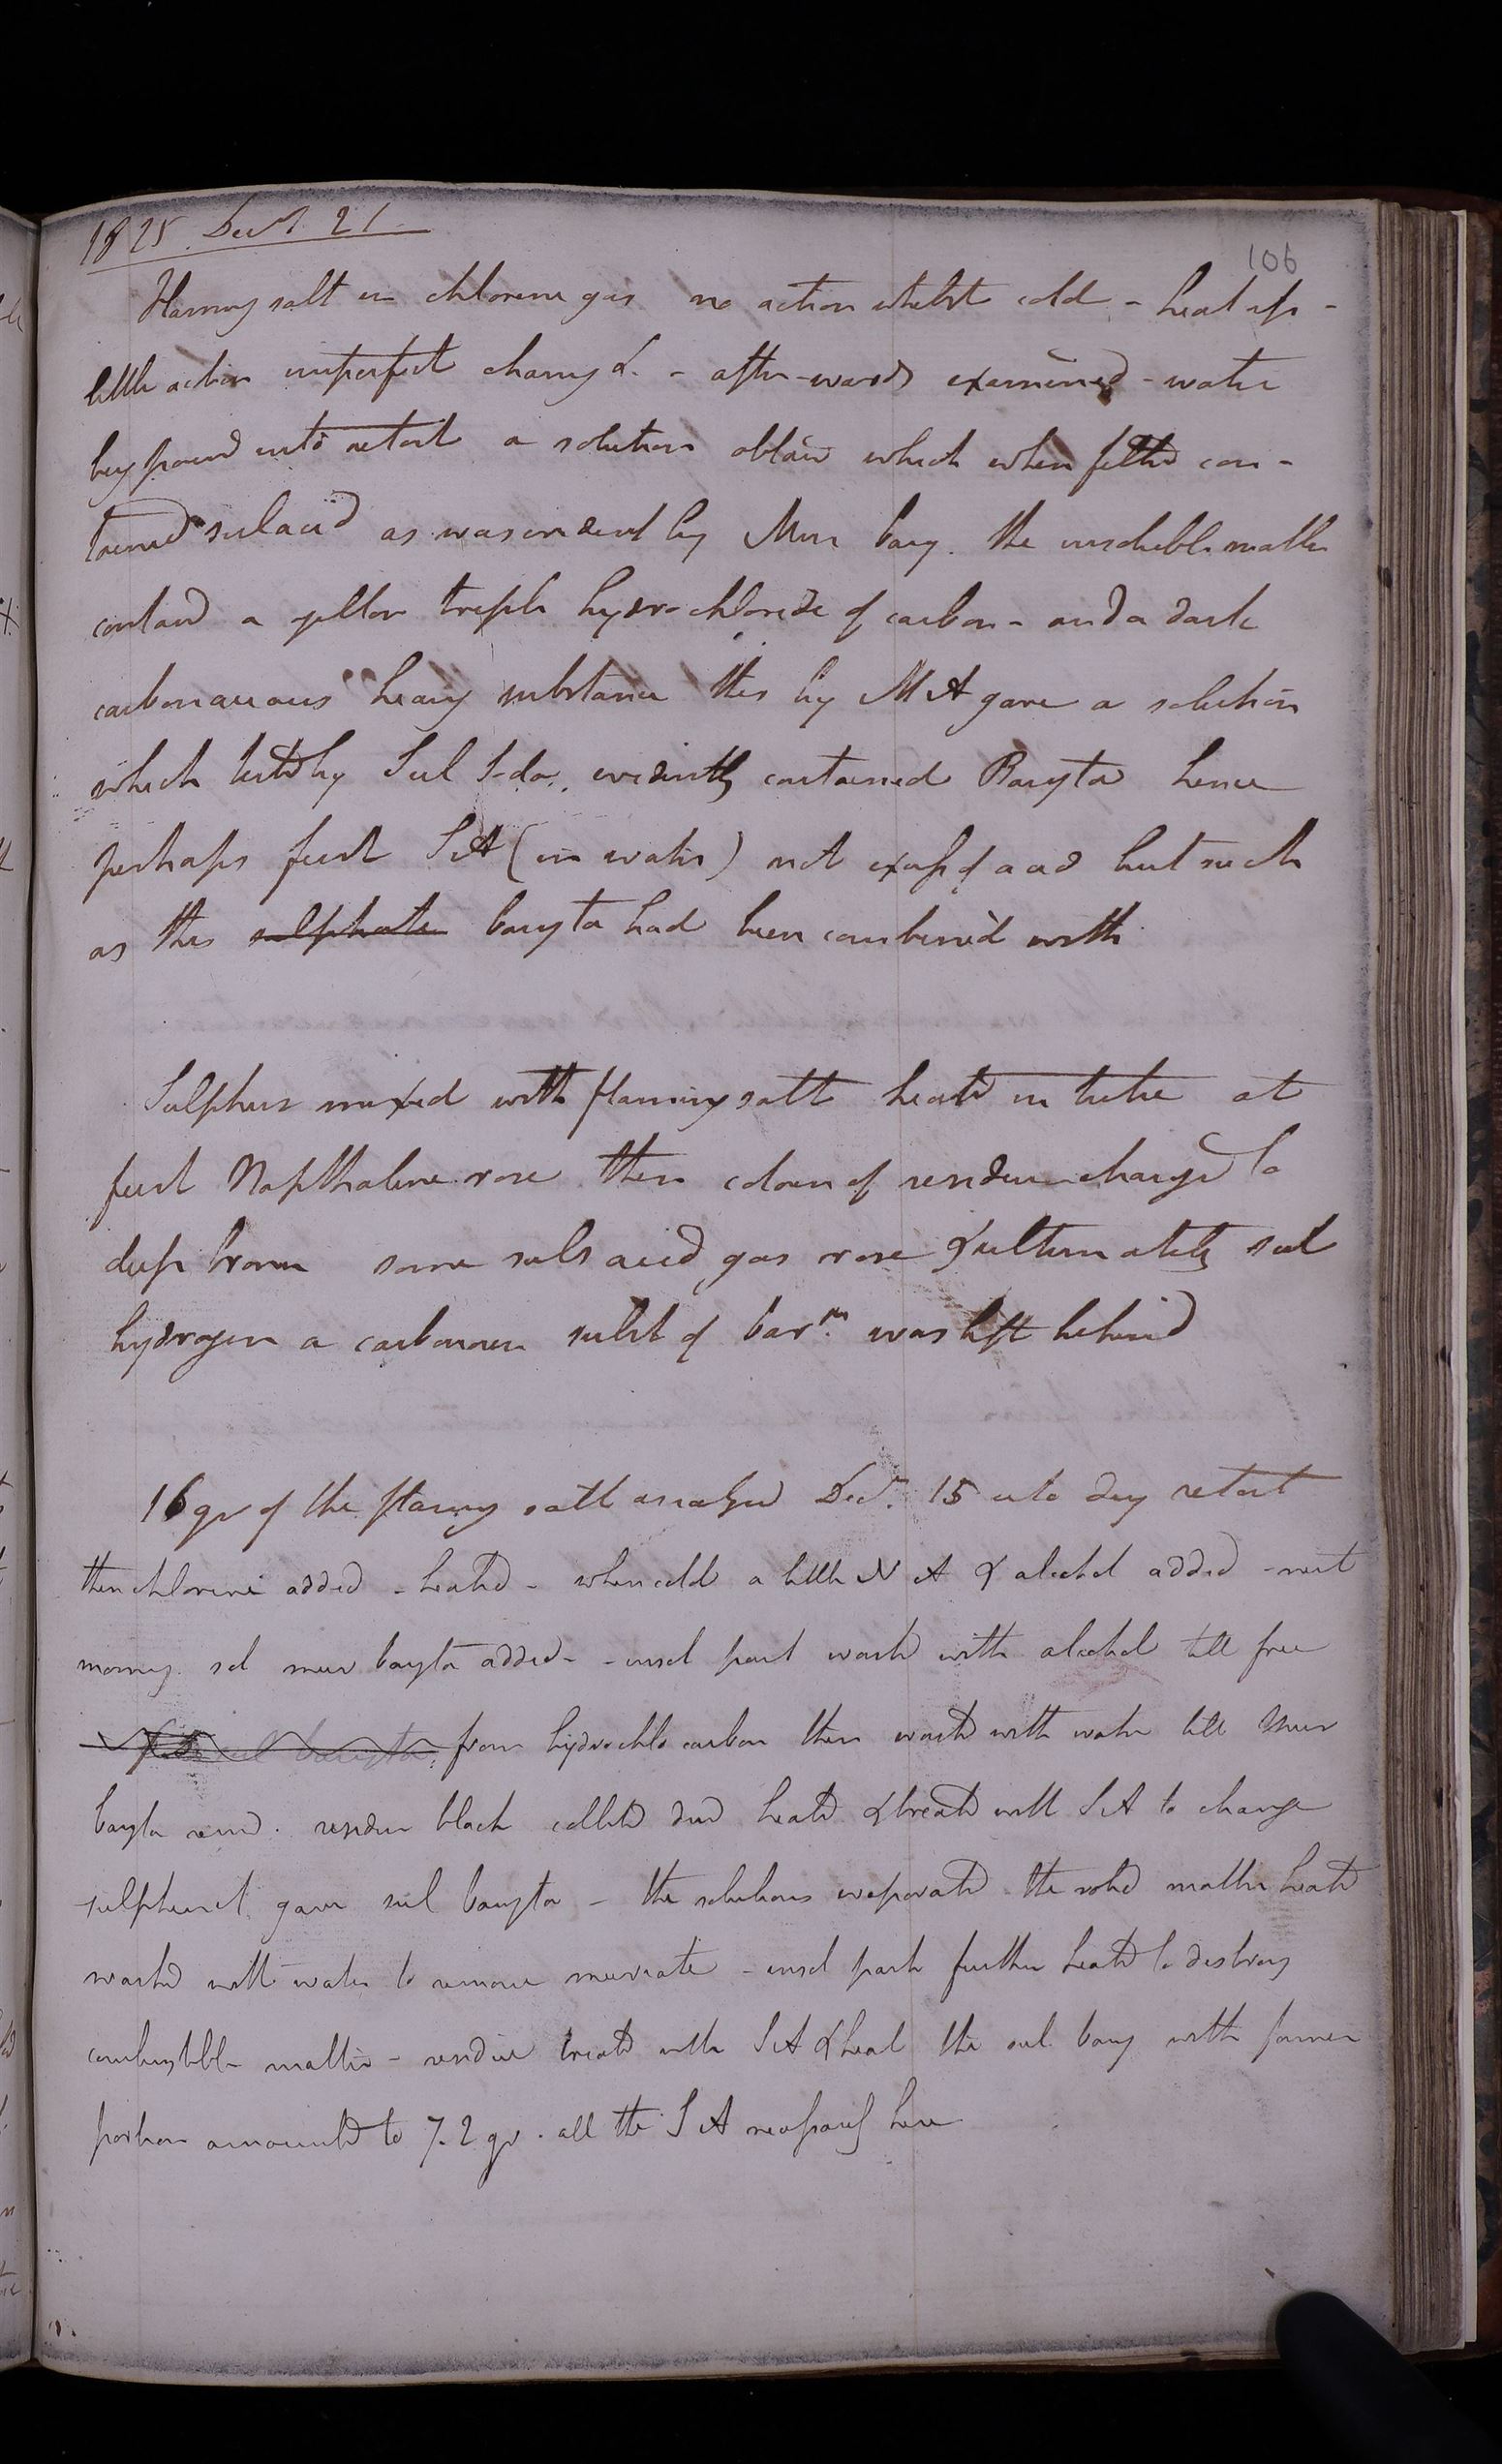 1825 Decr. 21
106
Flaming salt in chlorine gas no action whilst cold - heat app -
little action imperfect charring &. - after-wards examined - water
being pourd into retort a solution obtaind which when filtd con -
taind sul acid as was evident by Mur bary. the insoluble matter
contand a yellow triple hydrochloride of carbon - and a dark
carbonaceous heavy substance this by M A gave a solution
which testd by Sul Soda, evidently contained Baryta hence
perhaps first S A (in water) not of acid but such
as this sulphate baryta had been combined with
Sulphur mixed with flaming salt heatd in tube at
first Napthaline rose then colour of residuum changd to
deep brown some suls acid gas rose & ultimately sul
hydrogen a carbonaceous sulst of barm. was left behind
16 gr of the flaming salt analysed Decr. 15 into dry retort
then chlorine added - heated - when cold a little N A & alcohol added - next
morning sol mur baryta added - - insol part washd with alcohol till free
sul baryta from hydrochlo carbon then washd with water till Mur
baryta remd. residue black colletd dried heatd & treatd with S A to change
sulphuret gave sul baryta - the solutions evaporatd the solid matter heatd
washd with water to remove muriate - insol part further heatd to destroy
combustible matter - residue treatd with S A & heat the sul. bary with former
portion amountd to 7.2 gr. all the S A here